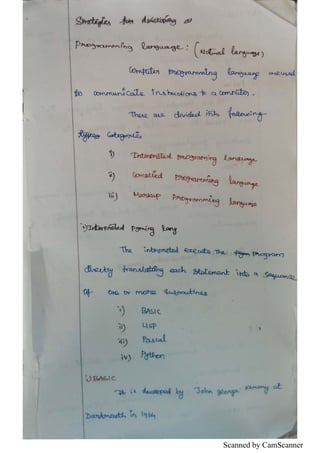 Strategies for developing a
Programming language: (Natural language)
Computer programming language are used
to communicate instructions to a computer.
There are divided into following
types Categories
i) Interpreted programing Language
ii) Compiled programming language
iii) Markup programming language
i) Interpreted Pgming lang
The interpreted execute the program
directly translating each statement into a sequence
of one or more subroutines
i) BASIC
ii) LISP
iii) Pascal
iv) Python
i) BASIC
It is developed by John george kemeny at
Dartmouth in 1964
Scanned by CamScanner